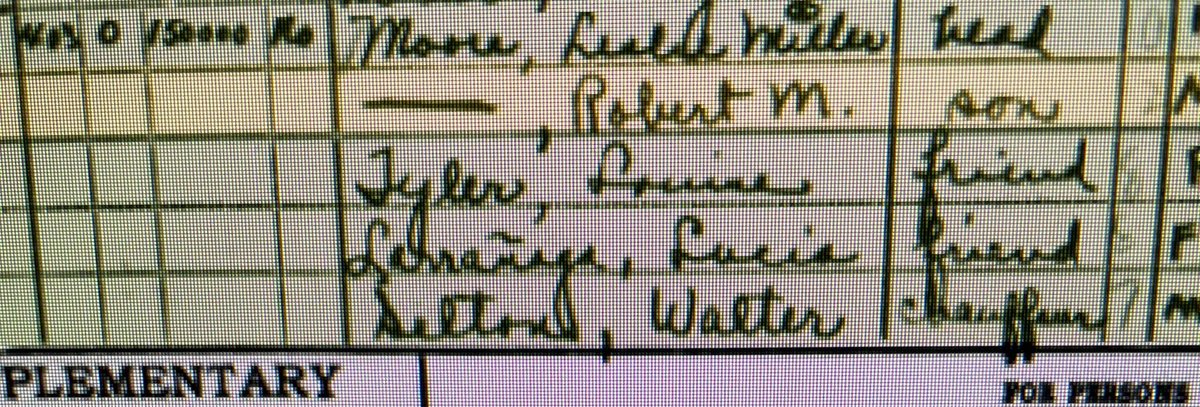 O 15000 No Moore, Leslie Miller head
—, Robert M. son
Tyler, Louise friend
Lucia friend
Walter chauffeur 7
PLEMENTARY
FOR PERSONS